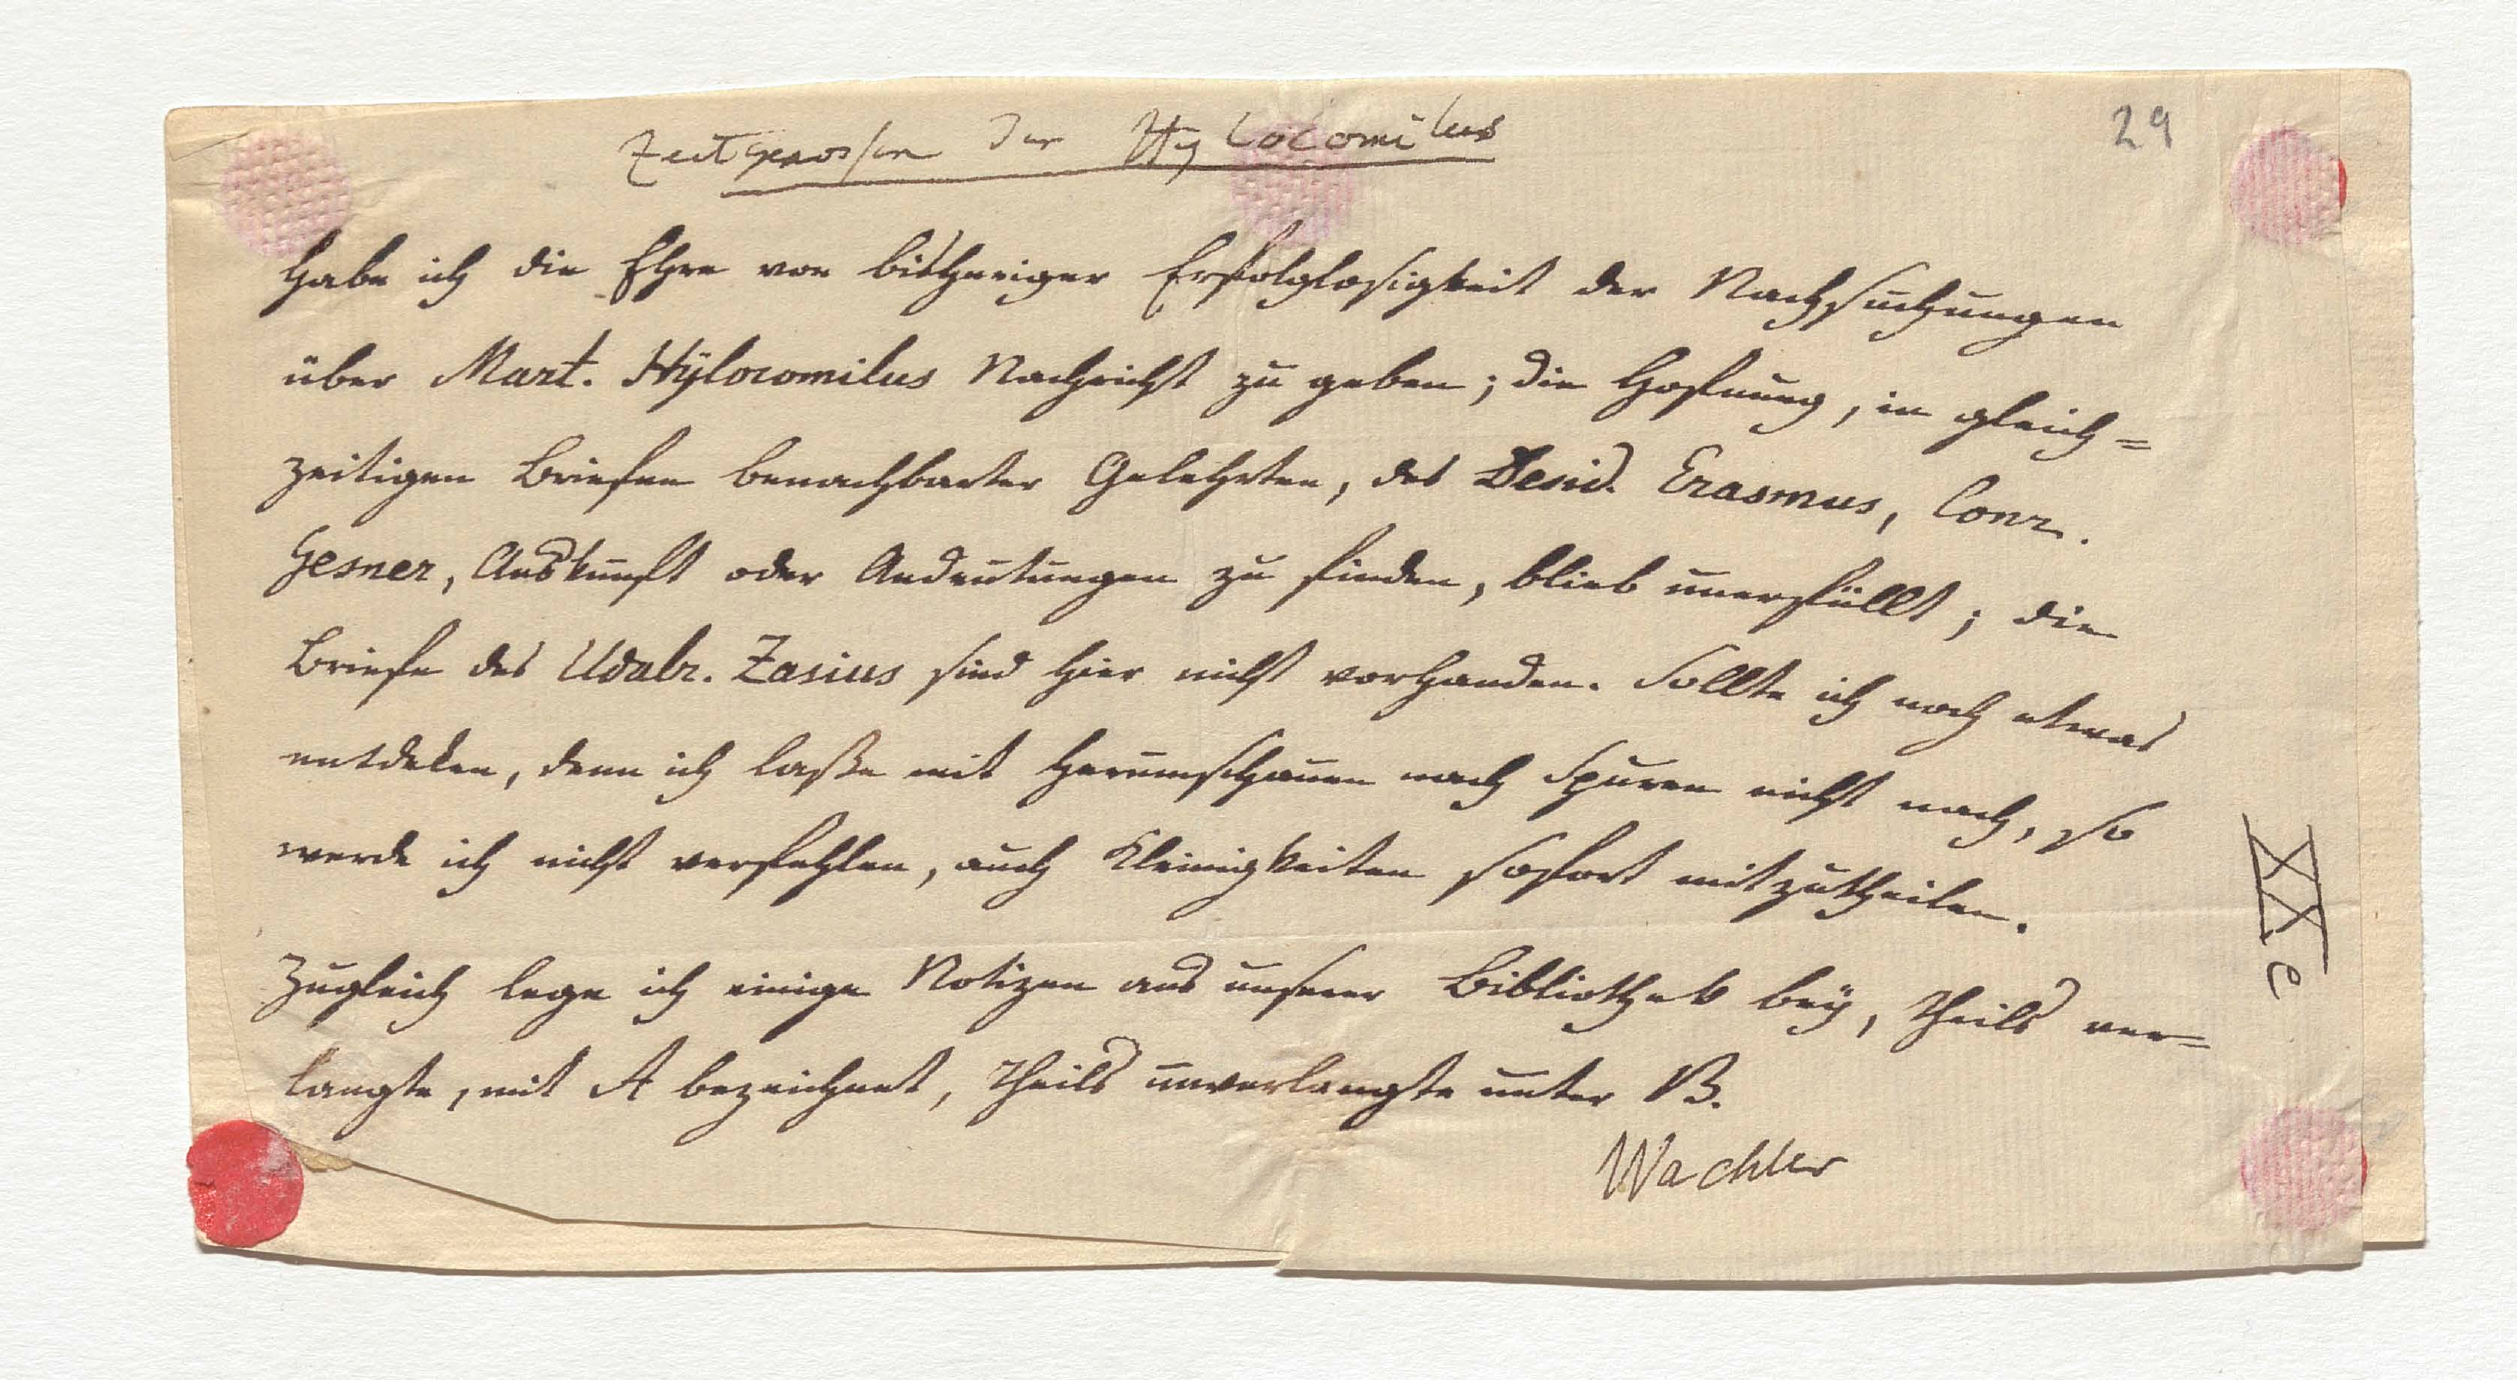 Zeitgenossen des Hylocomilus
29
Habe ich die Ehre von bisheriger Erfolglosigkeit der Nachsuchungen
über Mart. Hÿlocomilus Nachricht zu geben; die Hofnung, in gleich=
zeitigen Briefen benachbarter Gelehrten, des Desid. Erasmus, Conr.
Gesner, Auskunft oder Andeutungen zu finden, blieb unerfüllt; die
Briefe des Udalr. Zasius sind hier nicht vorhanden. Sollte ich noch etwas
entdeken, denn ich laße mit Herumschauen nach Spuren nicht nach, so
werde ich nicht verfehlen, auch Kleinigkeiten sofort mitzutheilen.
Zugleich lege ich einige Notizen aus unserer Bibliothek beÿ, theils ver=
langte, mit A bezeichnet, theils unverlangte unter B.
Wachler
XXe